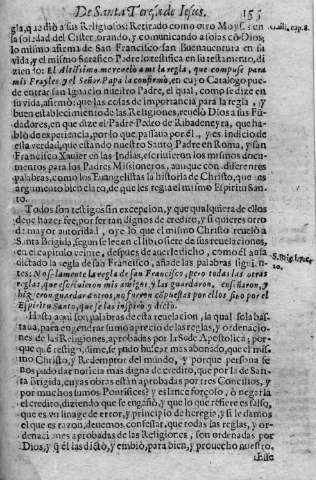 De Santa Teresa de Iesus. 155
gla, que dió a sus Religiosos: Retirado como otro Moysen en
la soledad del Cister orando, y comunicando a solas cō Dios;
lo mismo afirma de San Francisco San Buenauentura en su
vida, y el mismo Serafico Padre lo testifica en su testamento, di
ziendo: El Altissimo me reuelò a mi la regla, que compuse para
mis Frayles, y el Señor Papa la confirmò, en cuyo Catalogo pue-
de entrar san Ignacio nuestro Padre, el qual, como se dize en
su vida, afirmò: que las cosas de importancia para la regla, y
buen establecimiento de las Religiones, reuelò Dios a sus Fu-
dadores, en que dize el Padre Pedro de Ribadeneyra, que ha-
blò de experiencia, por lo que passaua por èl, y es indicio de
esta verdad, que estando nuestro Santo Padre en Roma, y san
Francisco Xauier en las Indias, escriuieron los mismos docu-
mentos para los Padres Missioneros, aunque con diferentes
palabras, como los Euangelistas la historia de Christo, que es
argumento bien claro, de que les regia el mismo Espiritu San-
to.
Todos son testigos sin excepcion, y que qualquiera de ellos
deue hazer fee, por ser tan dignos de credito, y si quieres otro
de mayor autoridad, oye lo que el mismo Christo reuelò a
Santa Brigida, segun se lee en el libro siete de sus reuelaciones,
en el capitulo veinte, despues de auerle dicho, como èl auia
dictado la regla de san Francisco, añade las palabras siguien-
tes: No solamente la regla de san Francisco, pero todas las otras
reglas, que escriuieron mis amigos, y las guardaron, enseñaron, y
hizieron guardar a otros, no fueron cōpuestas por ellos sino por el
Espiritu Santo, que se las inspirò, y dictò.
Hasta aqui son palabras de esta reuelacion, la qual sola bas-
taua, para engendrar sumo aprecio de las reglas, y ordenacio-
nes de las Religiones, aprobadas por la Sede Apostolica; por-
que què testigo, dime, se pudo buscar mas abonado, que el mis-
mo Christo, y Redemptor del mundo, y porque persona se
nos pudo dar noticia mas digna de credito, que por la de San-
ta Brigida, cuyas obras estàn aprobadas por tres Concilios, y
por muchos sumos Pontifices? y es lance forçoso, ò negarla
el credito, diziendo que se engañò, y que lo que refiere es falso,
que es vn linage de error, y principio de heregia, y si le damos
el que es razon, deuemos confessar, que todas las reglas, y or-
denaciones aprobadas de las Religiones, son ordenadas por
Dios, y q̃ èl las dictò, y embiò, para bien, y prouecho nuestro,